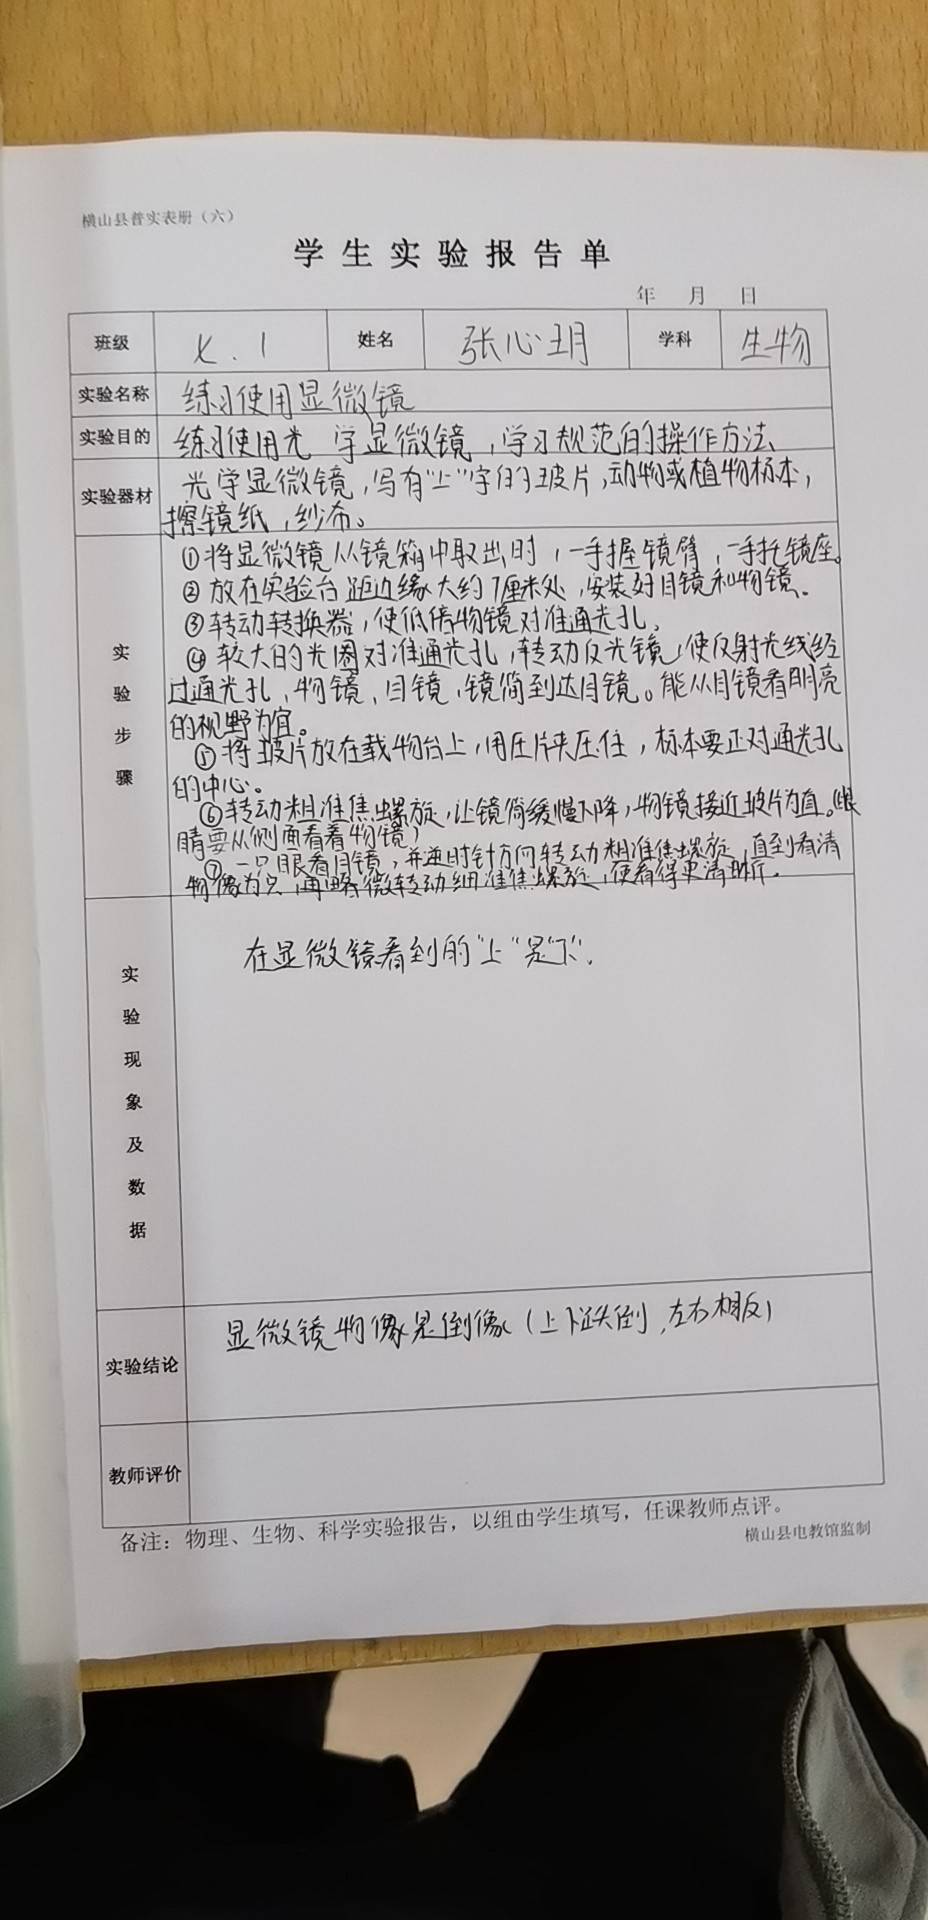 横山县普实表册（六）
学生实验报告单
年 月 日
班级 七.1 姓名 张心玥 学科 生物
实验名称 练习使用显微镜
实验目的 练习使用光学显微镜，学习规范的操作方法
实验器材 光学显微镜，写有"上"字的玻片，动物或植物标本，
擦镜纸，纱布。
实验步骤
①将显微镜从镜箱中取出时，一手握镜臂，一手托镜座。
②放在实验台距边缘大约7厘米处，安装好目镜和物镜.
③转动转换器，使低倍物镜对准通光孔。
④较大的光圈对准通光孔，转动反光镜，使反射光线经
过通光孔、物镜、目镜，镜筒到达目镜。能从目镜看明亮
的视野为宜。
⑤将玻片放在载物台上，用压片夹压住，标本要正对通光孔
的中心。
⑥转动粗准焦螺旋，让镜筒缓慢下降，物镜接近玻片为直。(眼
睛要从侧面看着物镜)
⑦一只眼看目镜，并逆时针方向转动粗准焦螺旋，直到看清
物像为只，再略微转动细准焦螺旋，使看得更清晰.
实验现象及数据
在显微镜看到的"上"是"下".
实验结论 显微镜物像是倒像（上下跌倒，左右相反）
教师评价
备注：物理、生物、科学实验报告，以组由学生填写，任课教师点评。
横山县电教馆监制